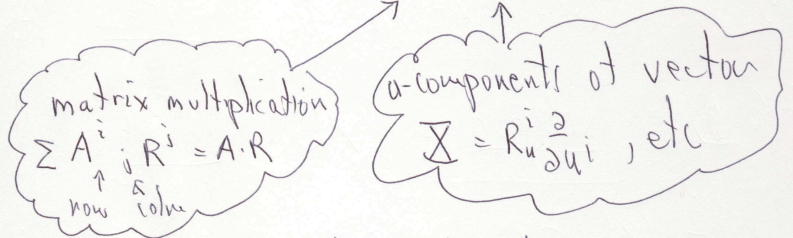 matrix multiplication
Σ Aⁱⱼ Rʲ = A·R
row column
u-components of vector
X = Rᵤⁱ ∂/∂uⁱ , etc